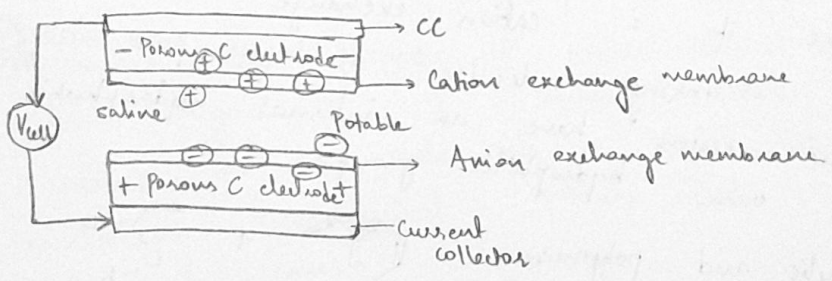 CC
- Porous C electrode -
+
+ +
Cation exchange membrane
+
saline
Vcell
Potable
-
- -
-
Anion exchange membrane
+ Porous C electrode +
Current
collector